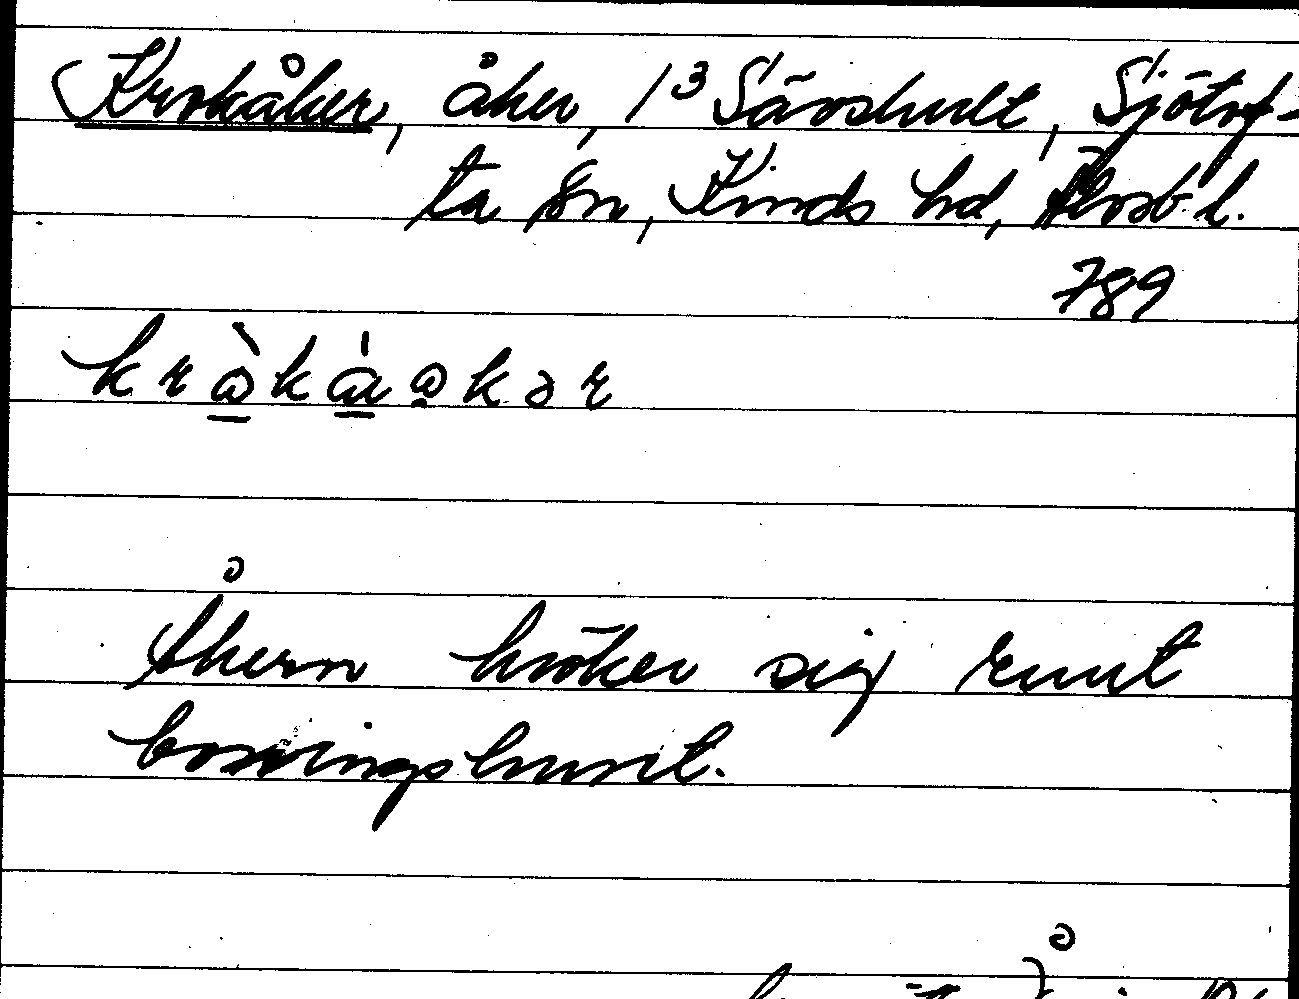 Krokåker, åker, 1³ Sävshult, Sjötof-
ta sn, Kinds hd, Älvsb. l.
789
kròkàokər
Åkern kröker sig runt
boningshuset.